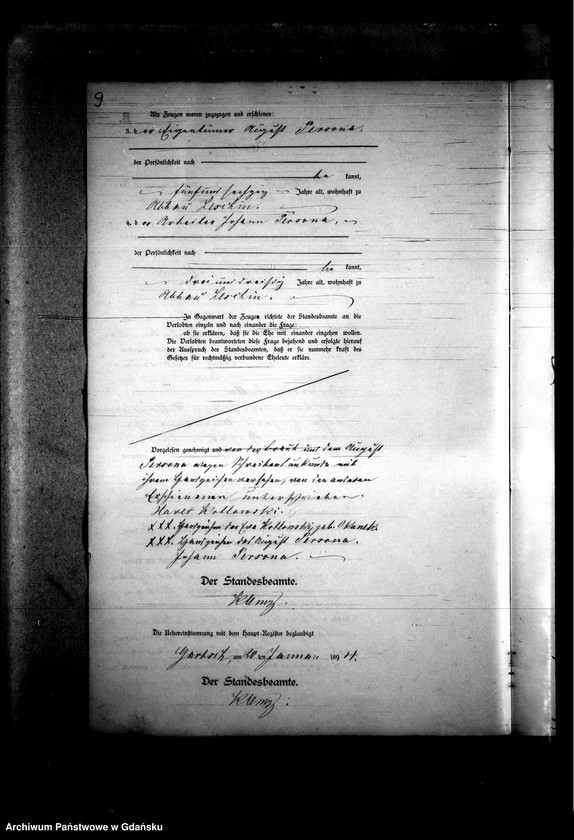 9
Als Zeugen waren zugezogen und erschienen:
3. der Eigentümer August Peroona.
der Persönlichkeit nach
be kannt,
fünfundsechzig Jahre alt, wohnhaft zu
Abbau
4. der Arbeiter Johann Peroona,
der Persönlichkeit nach
be kannt,
dreiunddreißig Jahre alt, wohnhaft zu
Abbau
In Gegenwart der Zeugen richtete der Standesbeamte an die
Verlobten einzeln und nach einander die Frage:
ob sie erklären, daß sie die Ehe mit einander eingehen wollen.
Die Verlobten beantworteten diese Frage bejahend und erfolgte hierauf
der Ausspruch des Standesbeamten, daß er sie nunmehr kraft des
Gesetzes für rechtmäßig verbundene Eheleute erkläre.
Vorgelesen genehmigt und von der Braut und dem August
Peroona wegen Schreibensunkunde mit
ihrem Handzeichen versehen, von den anderen
Erschienenen unterschrieben.
Kotlowski.
XXX. Handzeichen der Eva Kotlowski, geb.
XXX. Handzeichen des August Peroona.
Johann Peroona.
Der Standesbeamte.
Klemz.
Die Uebereinstimmung mit dem Haupt-Register beglaubigt
am ten Januar 189
Der Standesbeamte.
Klemz.
Archiwum Państwowe w Gdańsku